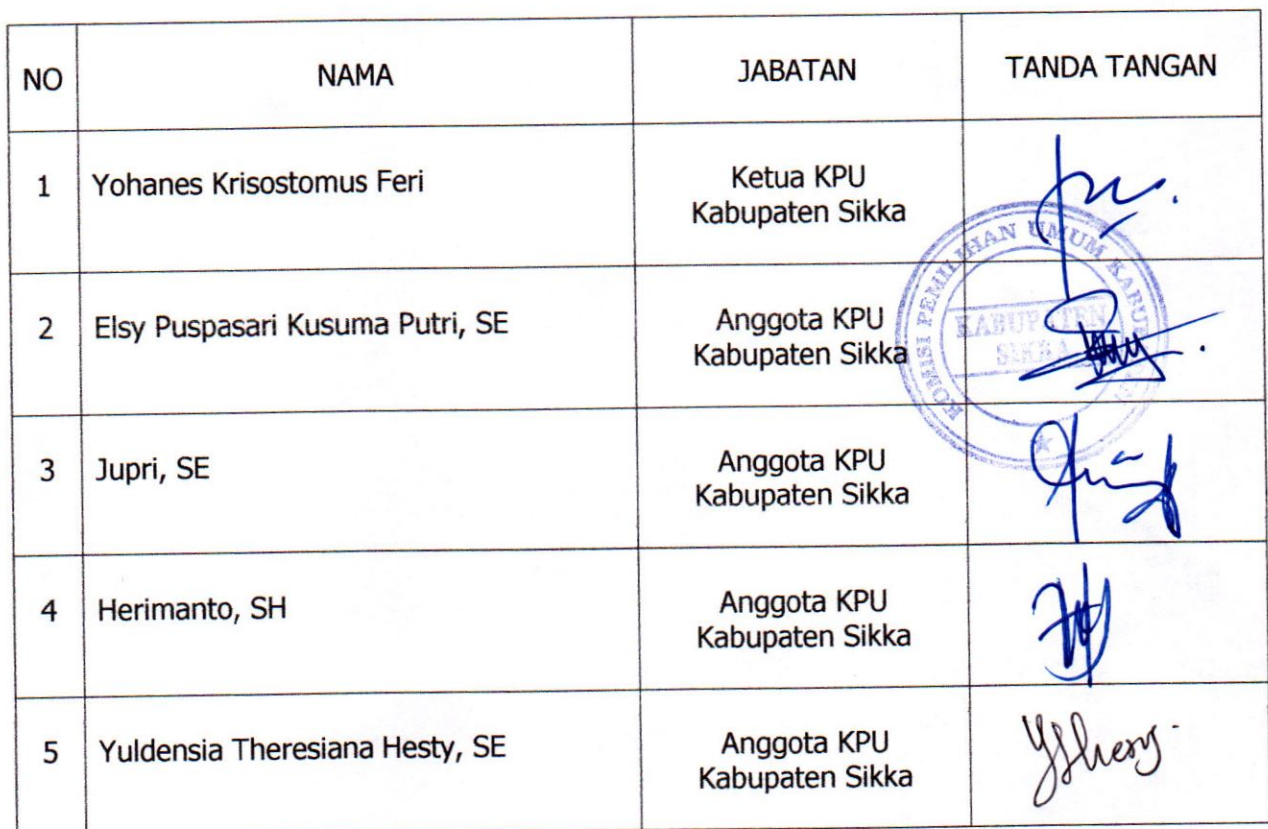 NO NAMA JABATAN TANDA TANGAN
1 Yohanes Krisostomus Feri Ketua KPU
Kabupaten Sikka
2 Elsy Puspasari Kusuma Putri, SE Anggota KPU
Kabupaten Sikka
3 Jupri, SE Anggota KPU
Kabupaten Sikka
4 Herimanto, SH Anggota KPU
Kabupaten Sikka
5 Yuldensia Theresiana Hesty, SE Anggota KPU
Kabupaten Sikka
KOMISI PEMILIHAN UMUM
KABUPATEN
SIKKA